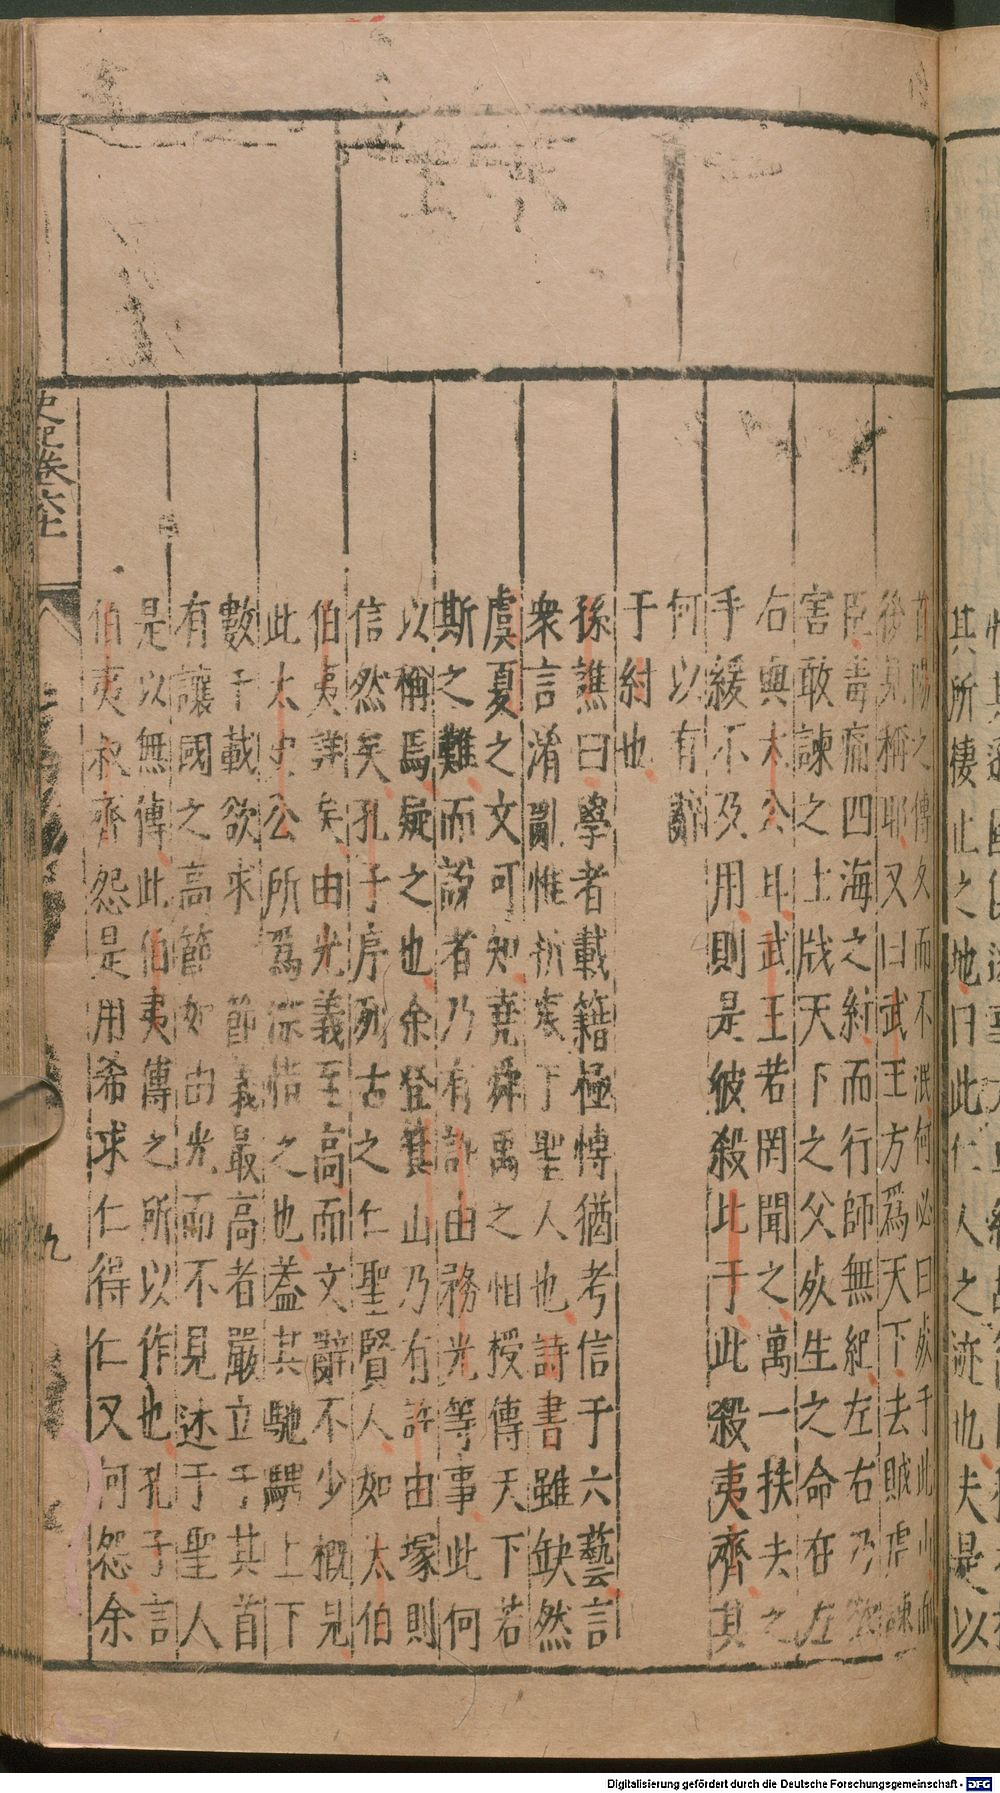 首陽之傳久而不泯何必曰歿于此山而
後見稱耶又曰武王方爲天下去賊虐諫
臣毒痡四海之紂而行師無紀左右乃欲
害敢諫之士戕天下之父歿生之命在左
右與太公耳武王若罔聞之萬一扶夫之
手緩不及用則是彼殺比干此殺夷齊其
何以有辭
于紂也
孫譙曰學者載籍極博猶考信于六藝言
衆言淆亂惟折衷于聖人也詩書雖缺然
虞夏之文可知堯舜禹之相授傳天下若
斯之難而說者乃有許由務光等事此何
以稱焉疑之也余登箕山乃有許由塚則
信然矣孔子序列古之仁聖賢人如太伯
伯夷詳矣由光義至高而文辭不少概見
此太史公所爲深惜之也蓋其馳騁上下
數千載欲求節義最高者嚴立于其首
有讓國之高節如由光而不見述于聖人
是以無傳此伯夷傳之所以作也孔子言
伯夷叔齊怨是用希求仁得仁又何怨余
史記卷六十一
九
其所棲止之地曰此仁人之迹也夫是以
Digitalisierung gefördert durch die Deutsche Forschungsgemeinschaft - DFG